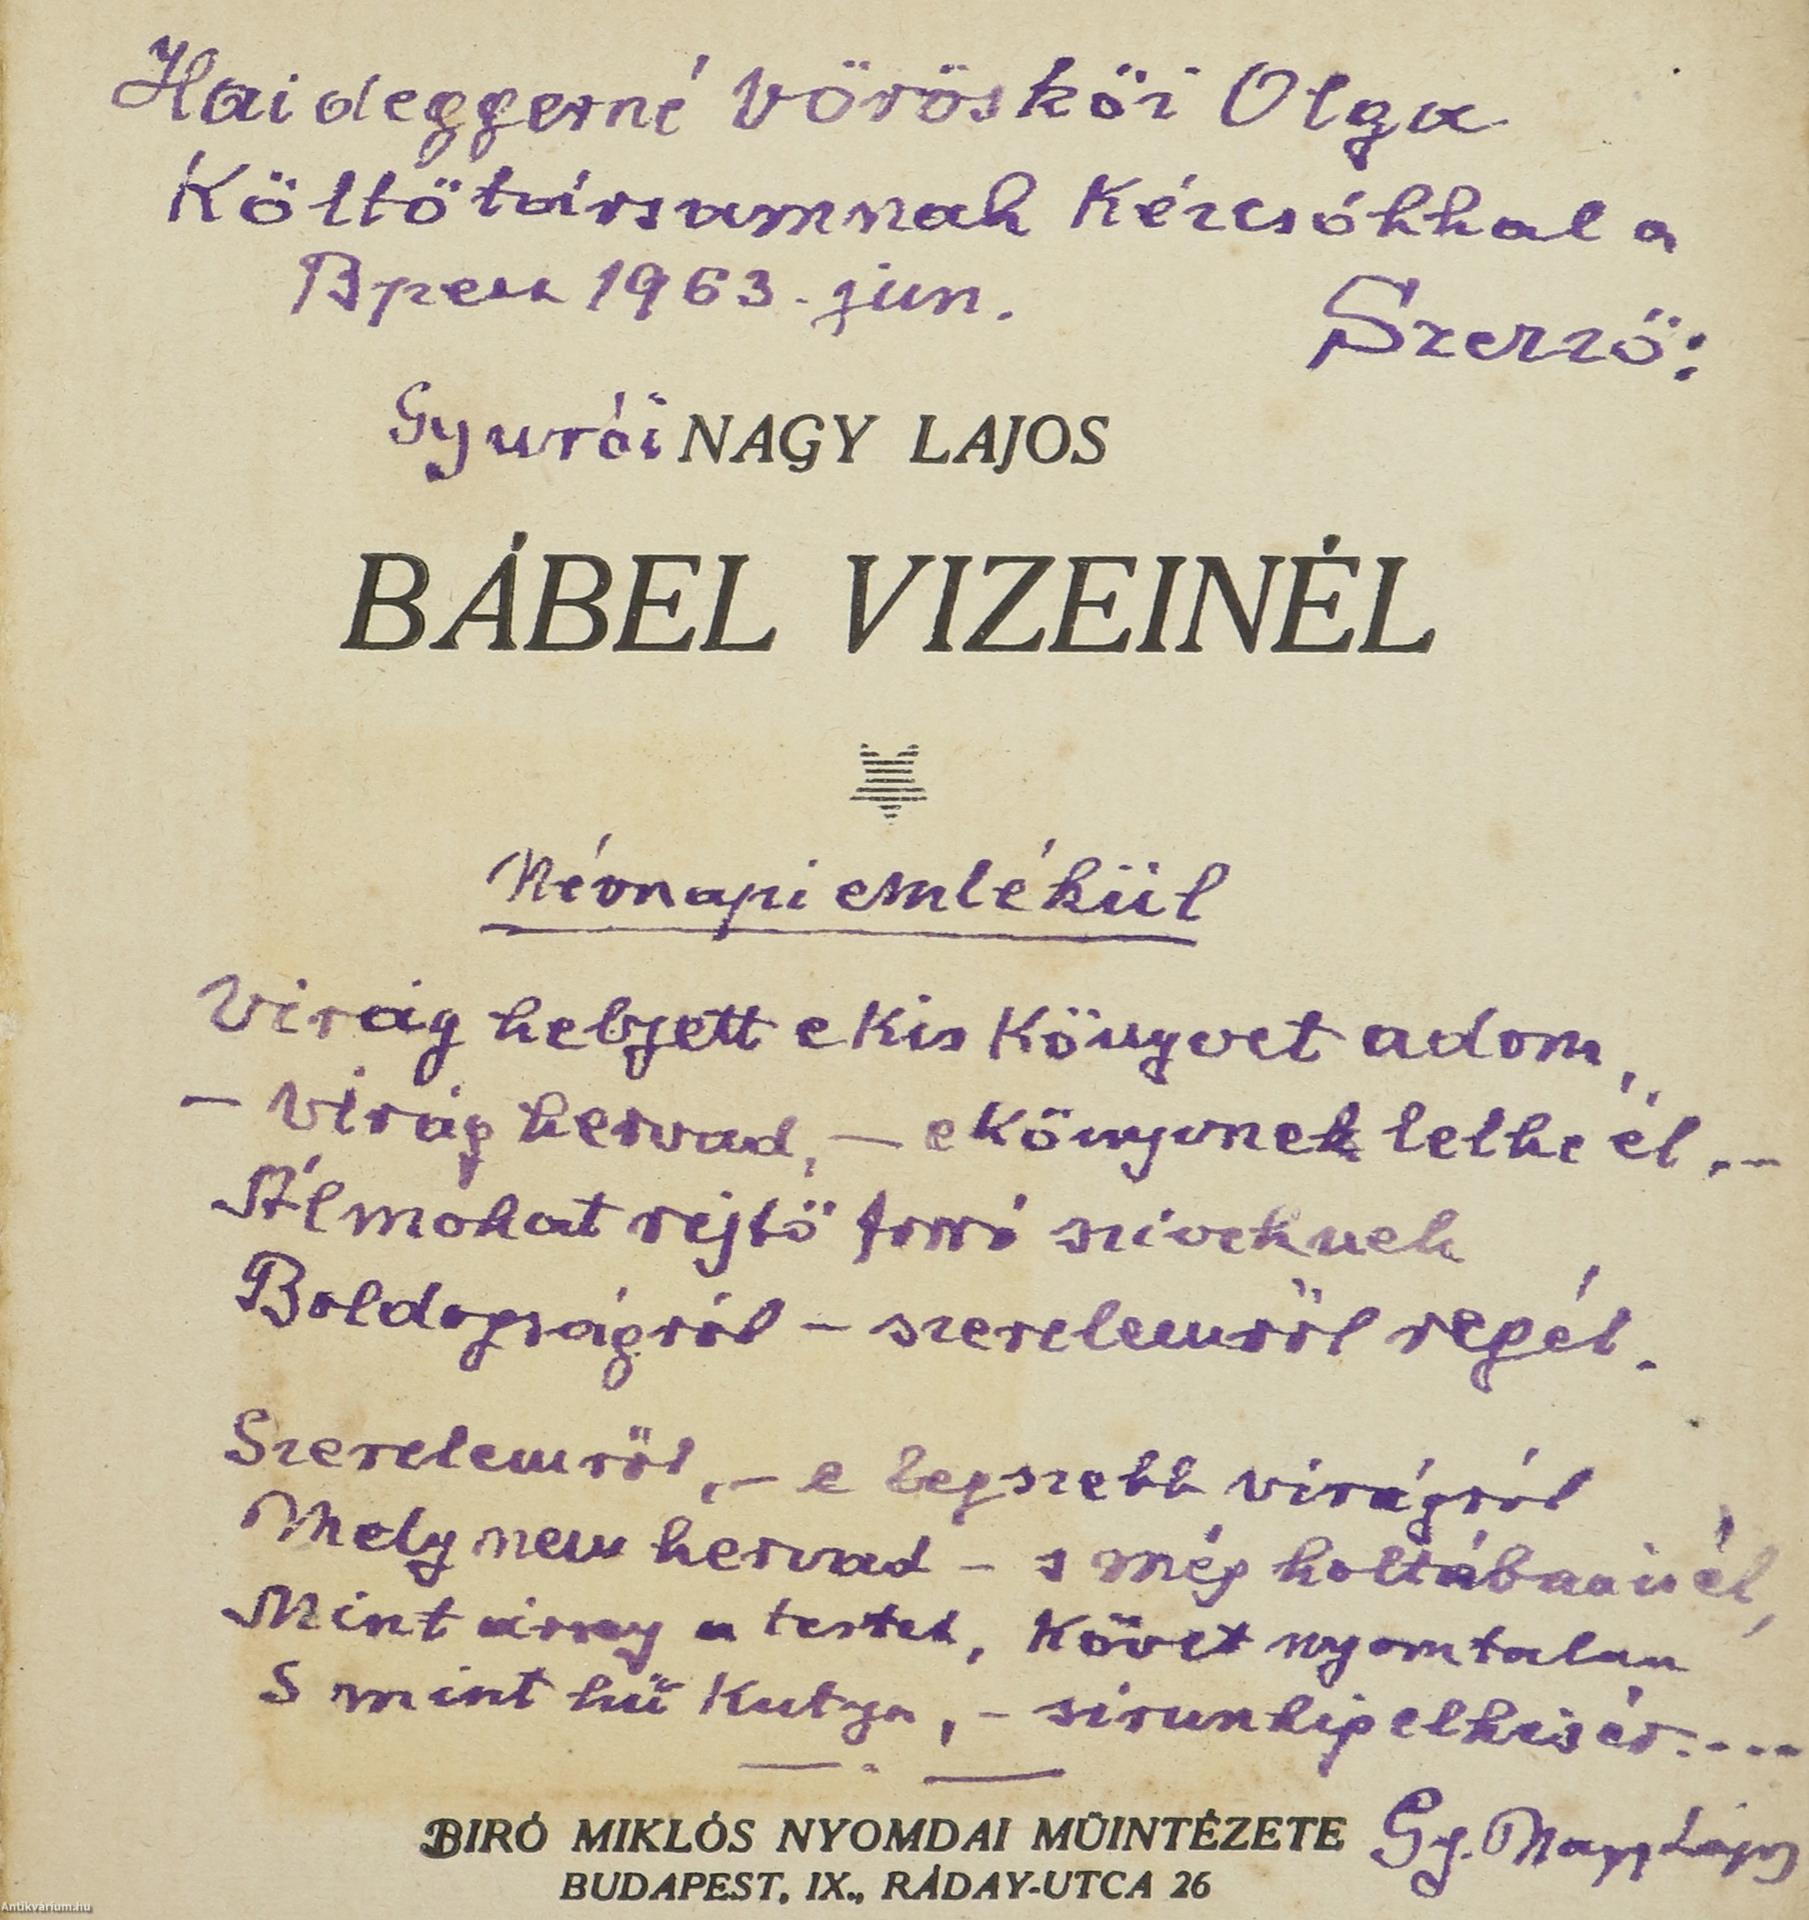 Haideggerné Vöröskői Olga
Költőtársamnak Kézcsókkal a
Bpest 1963. jun. Szerző:
Gyurói NAGY LAJOS
BÁBEL VIZEINÉL
Névnapi emlékül
Virág helyett e kis könyvet adom,
– virág hervad, – e könyvnek lelke él, –
Álmokat rejtő forró sziveknek
Boldogságról – szerelemről regél.
Szerelemről, – e legszebb virágról
Mely nem hervad – s még holtában is él,
Mint árny a testet, követ nyomtalan
S mint hű kutya, – sirunkig elkisér....
BIRÓ MIKLÓS NYOMDAI MŰINTÉZETE Gy. Nagy Lajos
BUDAPEST, IX., RÁDAY-UTCA 26
Antikvárium.hu